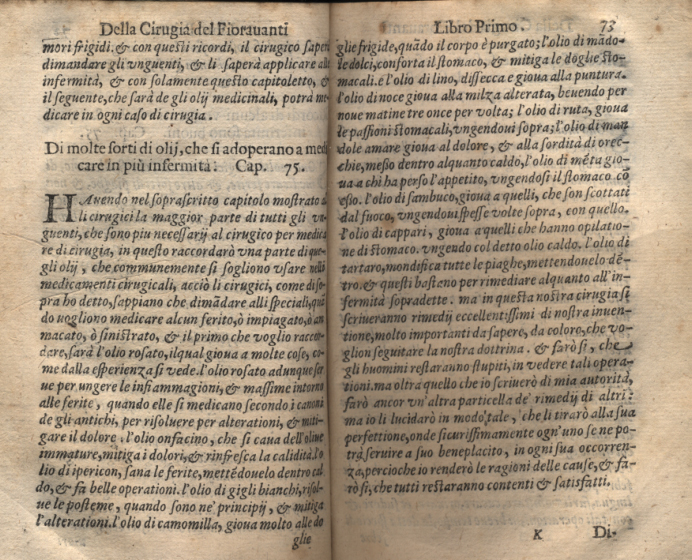 Della Cirugia del Fiorauanti
mori frigidi. & con questi ricordi, il cirugico sapera
dimandare gli vnguenti, & li saperà applicare alla
infermità, & con solamente questo capitoletto, &
il seguente, che sarà de gli olij medicinali, potrà me-
dicare in ogni caso di cirugia.
Di molte sorti di olij, che si adoperano a medi
care in più infermità: Cap. 75.
HAuendo nel soprascritto capitolo mostrato a
li cirugici la maggior parte di tutti gli vn-
guenti, che sono piu necessarij al cirugico per medica
re di cirugia, in questo raccordarò vna parte di que-
gli olij, che communemente si sogliono vsare nelli
medicamenti cirugicali, acciò li cirugici, come di so-
pra ho detto, sappiano che dimãdare alli speciali, quã
do uogliono medicare alcun ferito, ò impiagato, ò am
macato, ò sinistrato, & il primo che voglio raccor-
dare, sarà l'olio rosato, ilqual gioua a molte cose, co-
me dalla esperienza si vede. l'olio rosato adunque ser
ue per ungere le infiammagioni, & massime intorno
alle ferite, quando elle si medicano secondo i canoni
de gli antichi, per risoluere per alterationi, & miti-
gare il dolore. l'olio onfacino, che si caua dell'oliue
immature, mitiga i dolori, & rinfresca la calidità. l'o
lio di ipericon, sana le ferite, mettẽdouelo dentro cal
do, & fà belle operationi. l'olio di gigli bianchi, risol-
ue le posteme, quando sono ne' principij, & mitiga
l'alterationi. l'olio di camomilla, gioua molto alle do
glie
Libro Primo. 73
glie frigide, quãdo il corpo è purgato; l'olio di mãdo-
le dolci, conforta il stomaco, & mitiga le doglie sto-
macali. è l'olio di lino, dissecca e gioua alla puntura.
l'olio di noce gioua alla milza alterata, beuendo per
noue matine tre once per volta; l'olio di ruta, gioua
le passioni stomacali, vngendoui sopra; l'olio di man
dole amare gioua al dolore, & alla sordità di orec-
chie, messo dentro alquanto caldo, l'olio di mẽta gio-
ua a chi ha perso l'appetito, vngendosi il stomaco cõ
esso. l'olio di sambuco, gioua a quelli, che son scottati
dal fuoco, vngendoui spesse volte sopra, con quello.
l'olio di cappari, gioua a quelli che hanno opilatio-
ne di stomaco. vngendo col detto olio caldo. l'olio di
tartaro, mondifica tutte le piaghe, mettendouelo dẽ-
tro. & questi bastano per rimediare alquanto all'in-
fermità sopradette: ma in questa nostra cirugia si
scriueranno rimedij eccellentissimi di nostra inuen-
tione, molto importanti da sapere, da coloro, che vo-
glion seguitare la nostra dottrina. & farò si, che
gli huomini restaranno stupiti, in vedere tali opera-
tioni. ma oltra quello che io scriuerò di mia autorità,
farò ancor vn'altra particella de' rimedij di altri:
ma io li lucidarò in modo tale, che li tirarò alla sua
perfettione, onde sicurissimamente ogn'uno se ne po-
trà seruire a suo beneplacito, in ogni sua occorren-
za, percioche io renderò le ragioni delle cause, & fa-
rò si, che tutti restaranno contenti & satisfatti.
K Di-